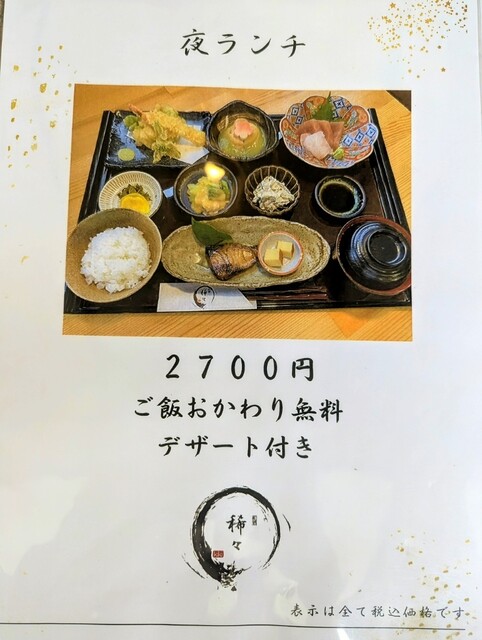 夜ランチ
2700円
ご飯おかわり無料
デザート付き
稀々
表示は全て税込価格です